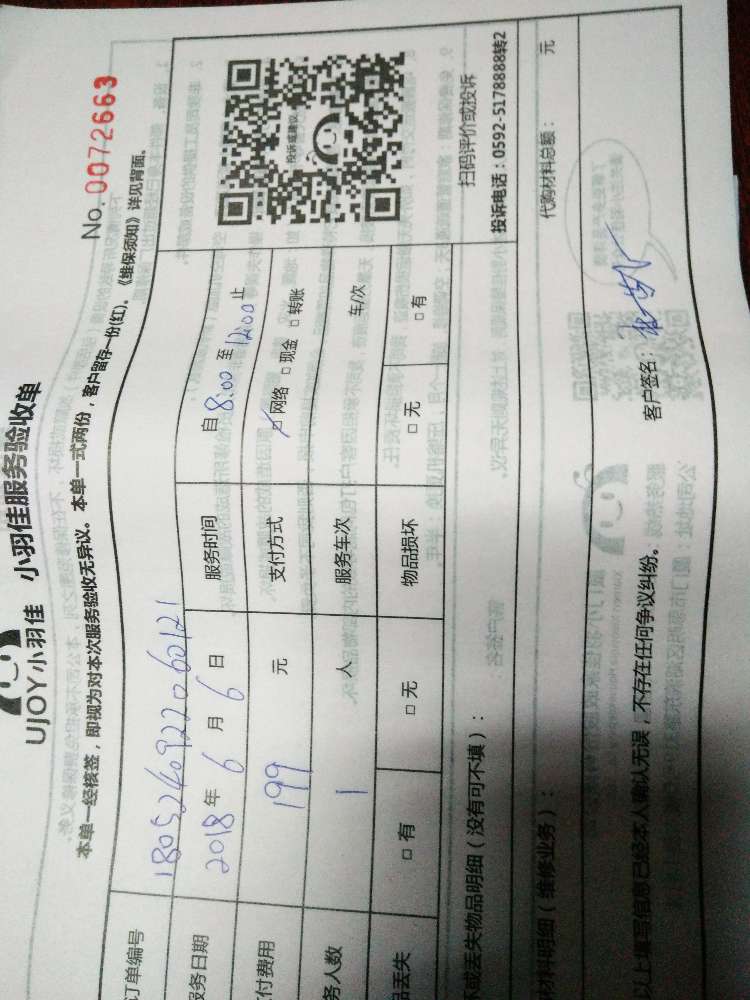 UJOY小羽佳 小羽佳服务验收单
No. 0072663
本单一经核签，即视为对本次服务验收无异议。本单一式两份，客户留存一份(红)、《维保须知》详见背面。
订单编号 180524092206 60121
务日期 2018年6月6日 服务时间 自8:00至12:00止
付费用 199元 支付方式 □网络 □现金 □转账
务人数 1人 服务车次 车/次
品丢失 □有 □无 物品损坏 □无 □有
投诉或建议
扫码评价或投诉
投诉电话：0592-5178888转2
坏或丢失物品明细（没有可不填）：
材料明细（维修业务）： 代购材料总额： 元
以上填写信息已经本人确认无误，不存在任何争议纠纷。 客户签名：